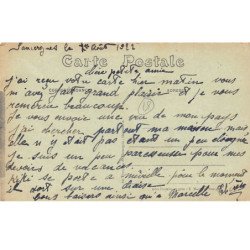 le 7 Août 1922
Carte Postale
une petite amie
j'ai reçu votre carte hier matin vous
m'avez fait grand plaisir et je vous
remercie beaucoup.
Je vous envoie une vue de mon pays
j'ai cherché partout ma maison mais
elle n'y était pas étant un peu éloignée
Je suis un peu paresseuse pour mes
devoirs de vacances.
se porte à merveille pour le moment
il dort sur une chaise.
bons baisers ainsi qu'à Marcelle